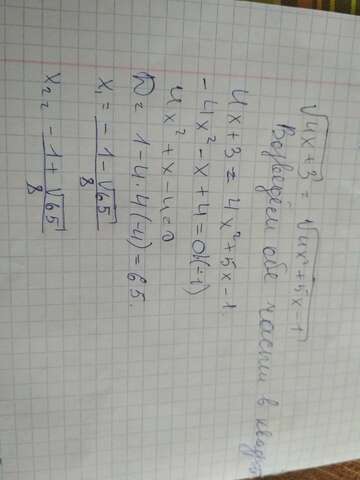 √4x+3 = √4x²+5x-1
Возведём обе части в квадрат
4x+3 = 4x²+5x-1
-4x²-x+4=0|(-1)
4x²+x-4=0
D= 1-4·4(-4)=65.
x₁ = -1-√65 / 8
x₂ = -1+√65 / 8